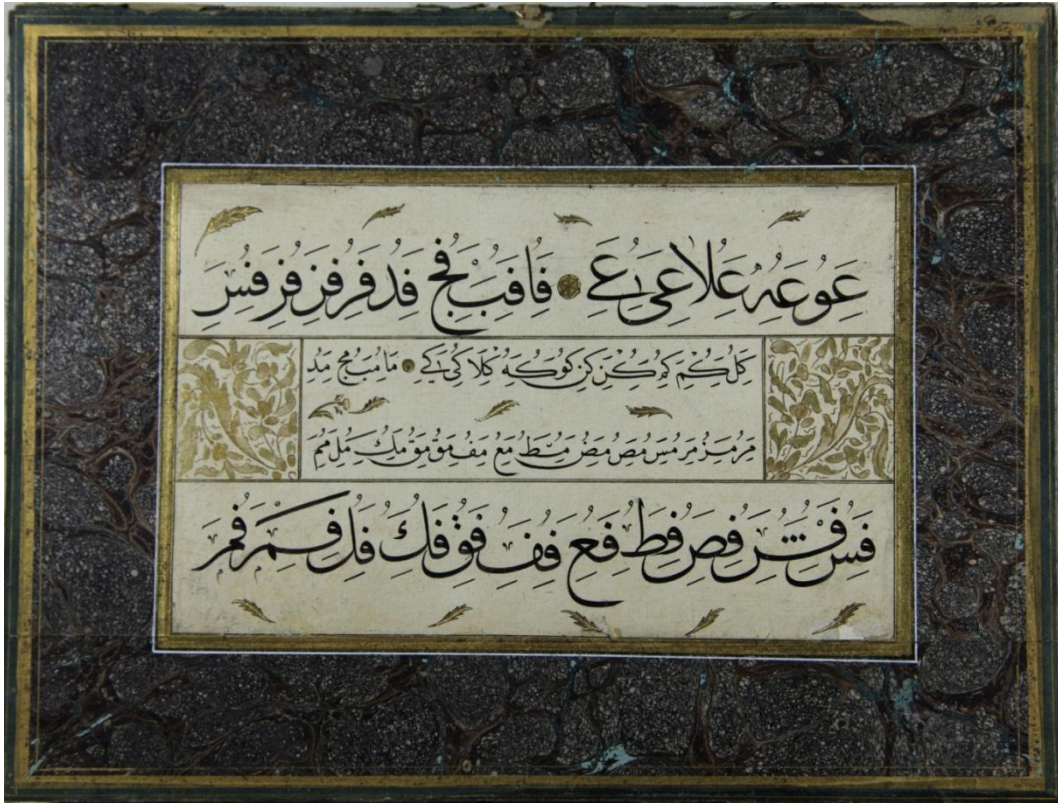 عو عه علا عى عے فا فب فج فد فر فز فر فس
كل كم كم كن كن كو كه كلا كى كے ما مب مج مد
مر مز مر مس مص مض مط مع مف مو مق مك مل مم
فس فش فص فط فع فف فق فك فل فم فم